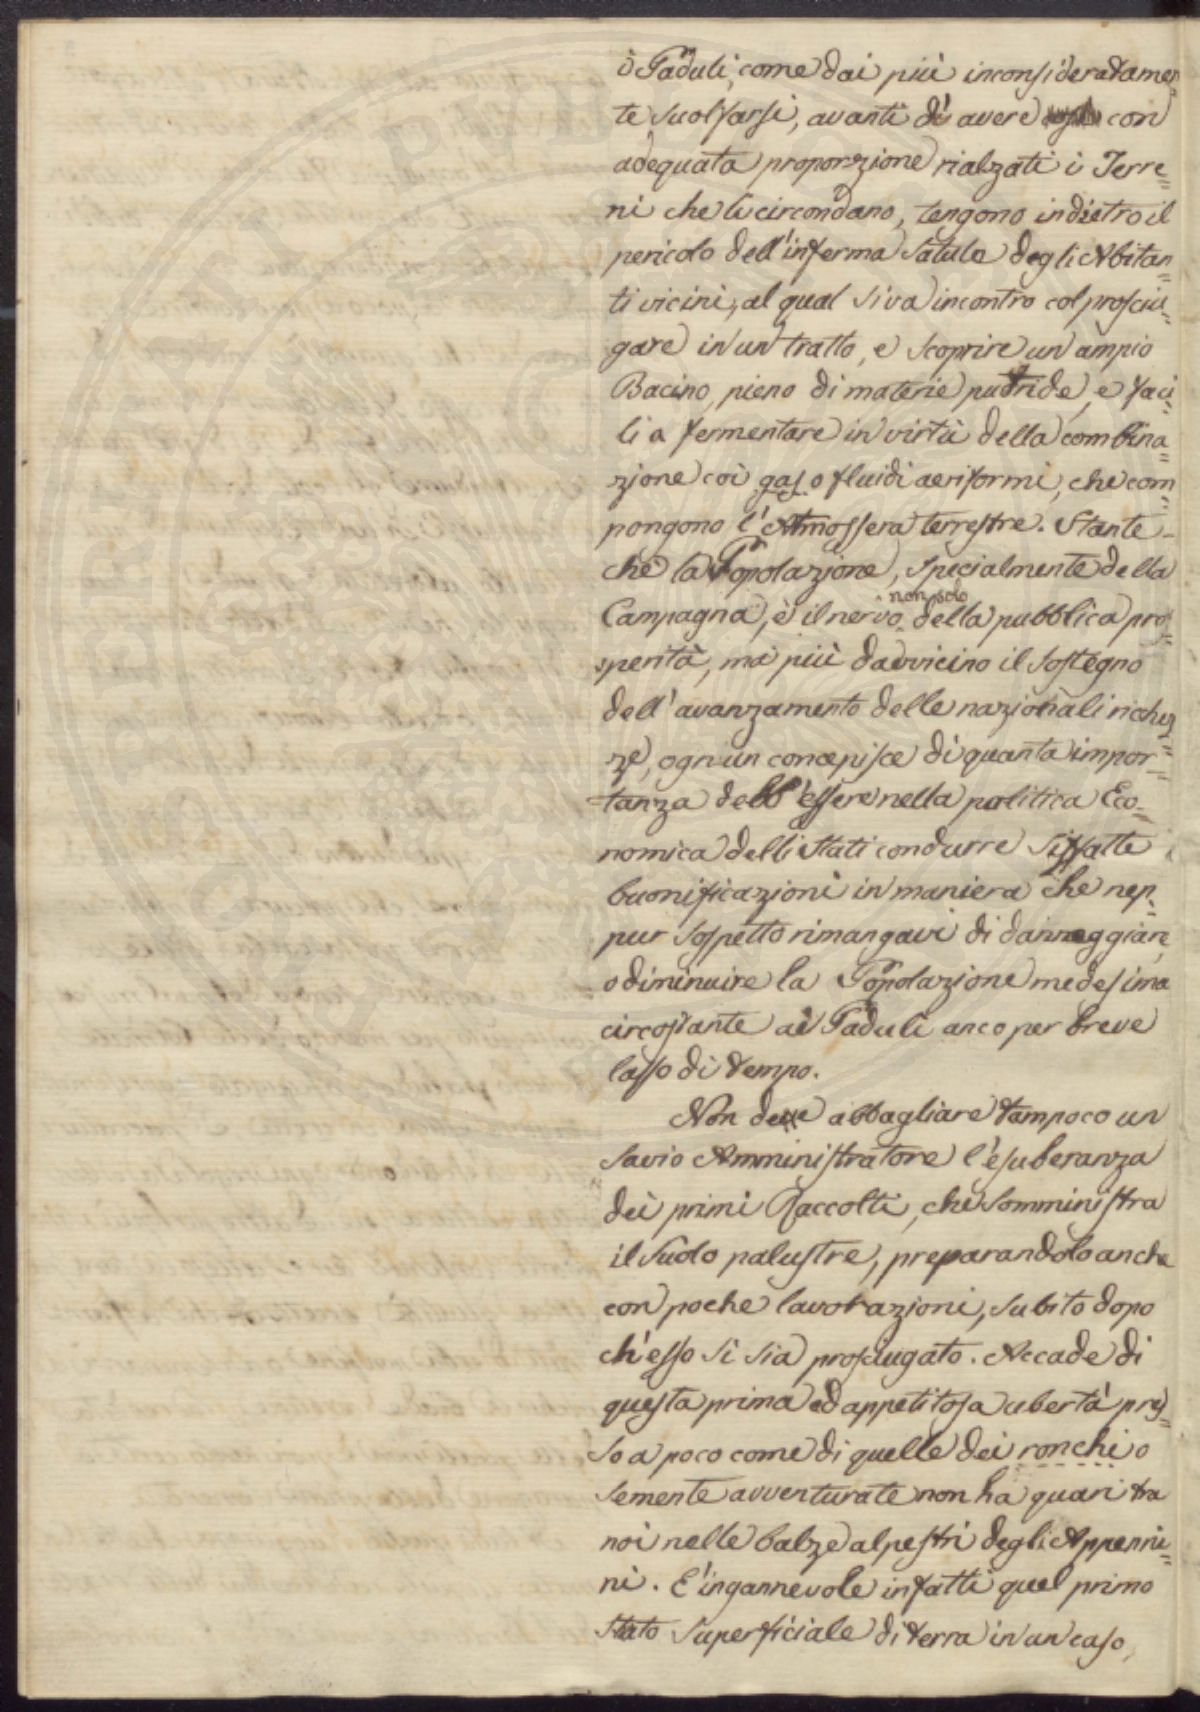 i Paduli, come dai più inconsideratamen=
te suol farsi, avanti di avere con
adequata proporzione rialzati i Terre=
ni che li circondano, tengono indietro il
pericolo dell'inferma salute degli Abitan=
ti vicini, al qual si va incontro col prosciu=
gare in un tratto, e scoprire un ampio
Bacino, pieno di materie putride, e faci=
li a fermentare in virtù della combina=
zione coi gas o fluidi aeriformi, che com=
pongono l'Atmosfera terrestre. Stante=
chè la Popolazione, specialmente della
Campagna, è il nervo non solo della pubblica pro=
sperità, ma più davvicino il sostegno
dell'avanzamento delle nazionali ricchez=
ze, ogniun concepisce di quanta impor=
tanza debb'essere nella politica Eco=
nomica delli Stati condurre siffatte
buonificazioni in maniera che nep=
pur sospetto rimangavi di danneggiare,
o diminuire la Popolazione medesima
circostante ai Paduli anco per breve
lasso di tempo.
Non deve abbagliare tampoco un
savio Amministratore l'esuberanza
dei primi Raccolti, che somministra
il suolo palustre, preparandolo anche
con poche lavorazioni, subito dopo
ch'esso si sia prosciugato. Accade di
questa prima ed appetitosa ubertà pres=
so a poco come di quelle dei ronchi o
semente avventurate non ha guari tra
noi nelle balze alpestri degli Appenni=
ni. E' ingannevole infatti quel primo
stato superficiale di terra in un caso,